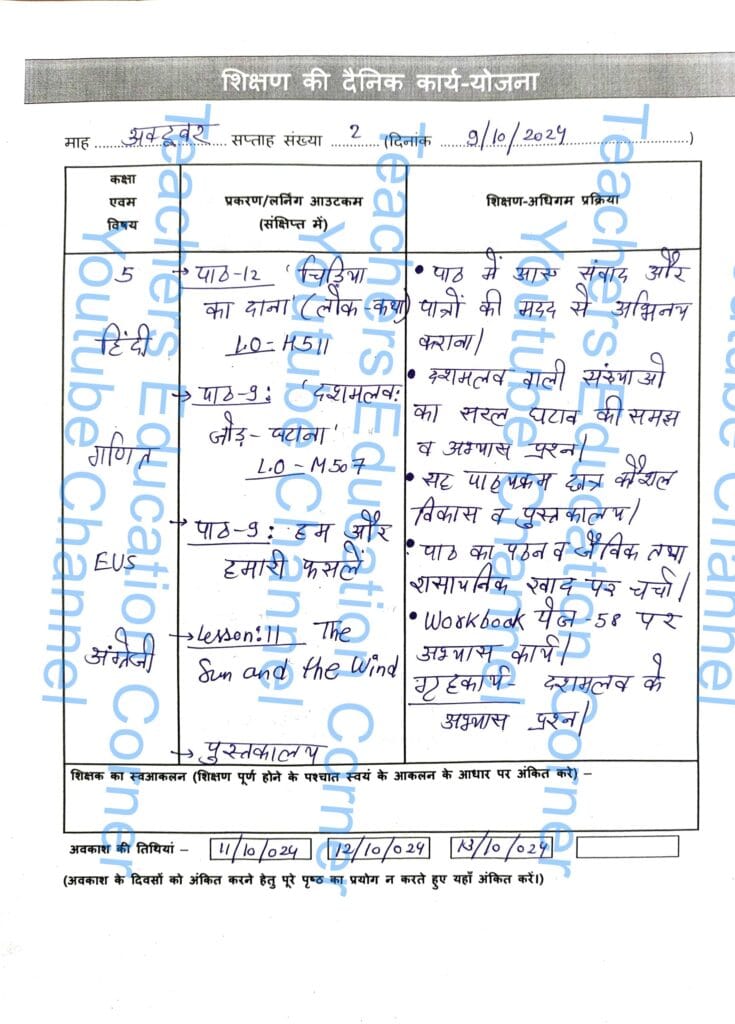 शिक्षण की दैनिक कार्य-योजना
माह ....अक्टूबर.... सप्ताह संख्या ....2.... (दिनांक ....9/10/2024....)
कक्षा
एवम
विषय
प्रकरण/लर्निंग आउटकम
(संक्षिप्त में)
शिक्षण-अधिगम प्रक्रिया
5
हिंदी
गणित
EVS
अंग्रेजी
→ पाठ-12 'चिड़िया
का दाना' (लोक-कथा)
L.O-H511
→ पाठ-9: 'दशमलव:
जोड़-घटाना'
L.O-M507
→ पाठ-9: हम और
हमारी फसलें
→ Lesson:11 The
Sun and the Wind
→ पुस्तकालय
• पाठ में आए संवाद और
पात्रों की मदद से अभिनय
कराना।
• दशमलव वाली संख्याओ
का सरल घटाव की समझ
व अभ्यास प्रश्न।
• सह पाठ्यक्रम छात्र कौशल
विकास व पुस्तकालय।
• पाठ का पठन व जैविक तथा
रासायनिक खाद पर चर्चा।
• Workbook पेज-58 पर
अभ्यास कार्य।
गृहकार्य- दशमलव के
अभ्यास प्रश्न।
शिक्षक का स्वआकलन (शिक्षण पूर्ण होने के पश्चात स्वयं के आकलन के आधार पर अंकित करे) –
अवकाश की तिथियां – 11/10/024 12/10/024 13/10/024
(अवकाश के दिवसों को अंकित करने हेतु पूरे पृष्ठ का प्रयोग न करते हुए यहाँ अंकित करें।)
Teachers Education Corner
Youtube Channel
Teachers Education Corner
Youtube Channel
Teachers Education Corner
Youtube Channel